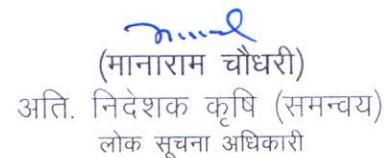 (मानाराम चौधरी)
अति. निदेशक कृषि (समन्वय)
लोक सूचना अधिकारी